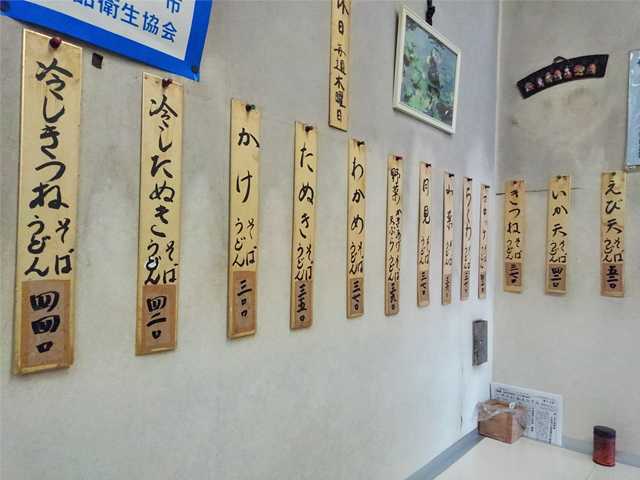 市
品衛生協会
休日毎週木曜日
冷しきつね そば うどん 四四〇
冷したぬき そば うどん 四二〇
かけ そば うどん 三〇〇
たぬき そば うどん 三五〇
わかめ そば うどん 三七〇
野菜 かきあげ 天ぷら そば うどん
月見 そば うどん 三七〇
山菜 そば うどん
ちくわ そば うどん
コロッケ そば うどん
きつね そば うどん 三七〇
いか天 そば うどん 四二〇
えび天 そば うどん 五二〇